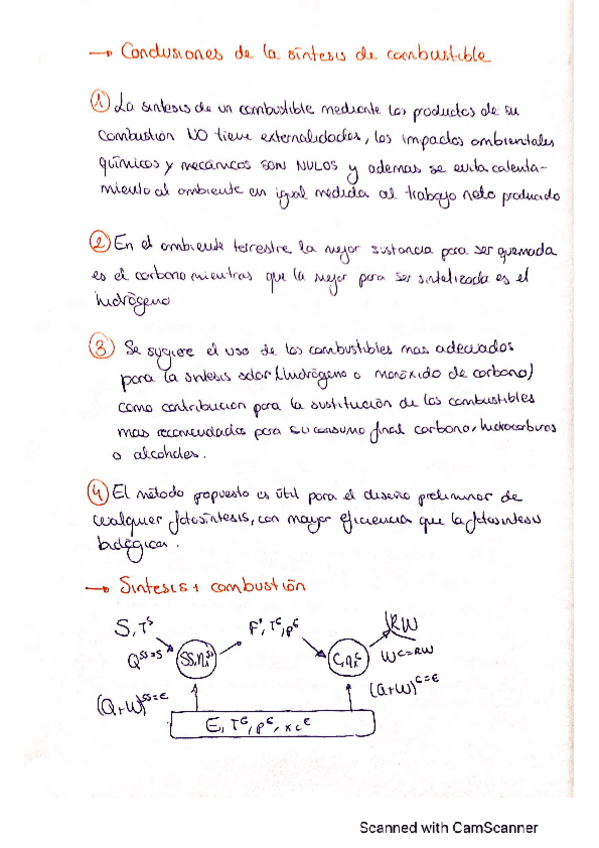 → Conclusiones de la síntesis de combustible
① La sintesis de un combustible mediante los productos de su
combustión NO tiene externalidades, los impactos ambientales
químicos y mecánicos SON NULOS y ademas se evita calenta-
miento al ambiente en igual medida al trabajo neto producido
② En el ambiente terrestre la mejor sustancia para ser quemada
es el carbono mientras que la mejor para ser sintetizada es el
hidrógeno
③ Se sugiere el uso de los combustibles mas adecuados
para la sintesis solar (hidrógeno o monóxido de carbono)
como contribución para la sustitución de los combustibles
mas recomendados para su consumo final carbono, hidrocarburos
o alcoholes.
④ El método propuesto es útil para el diseño preliminar de
cualquier fotosíntesis, con mayor eficiencia que la fotosintesis
biológica.
→ Síntesis + combustión
S, Tˢ
F', Tᴳ, pᴳ
RW
Qˢˢ⁼ˢ
SS, η
C, η
Wᶜ⁼ᴿᵂ
(Q+W)ˢˢ⁼ᴱ
(Q+W)ᶜ⁼ᴱ
E, Tᴳ, pᴳ, xcᴱ
Scanned with CamScanner